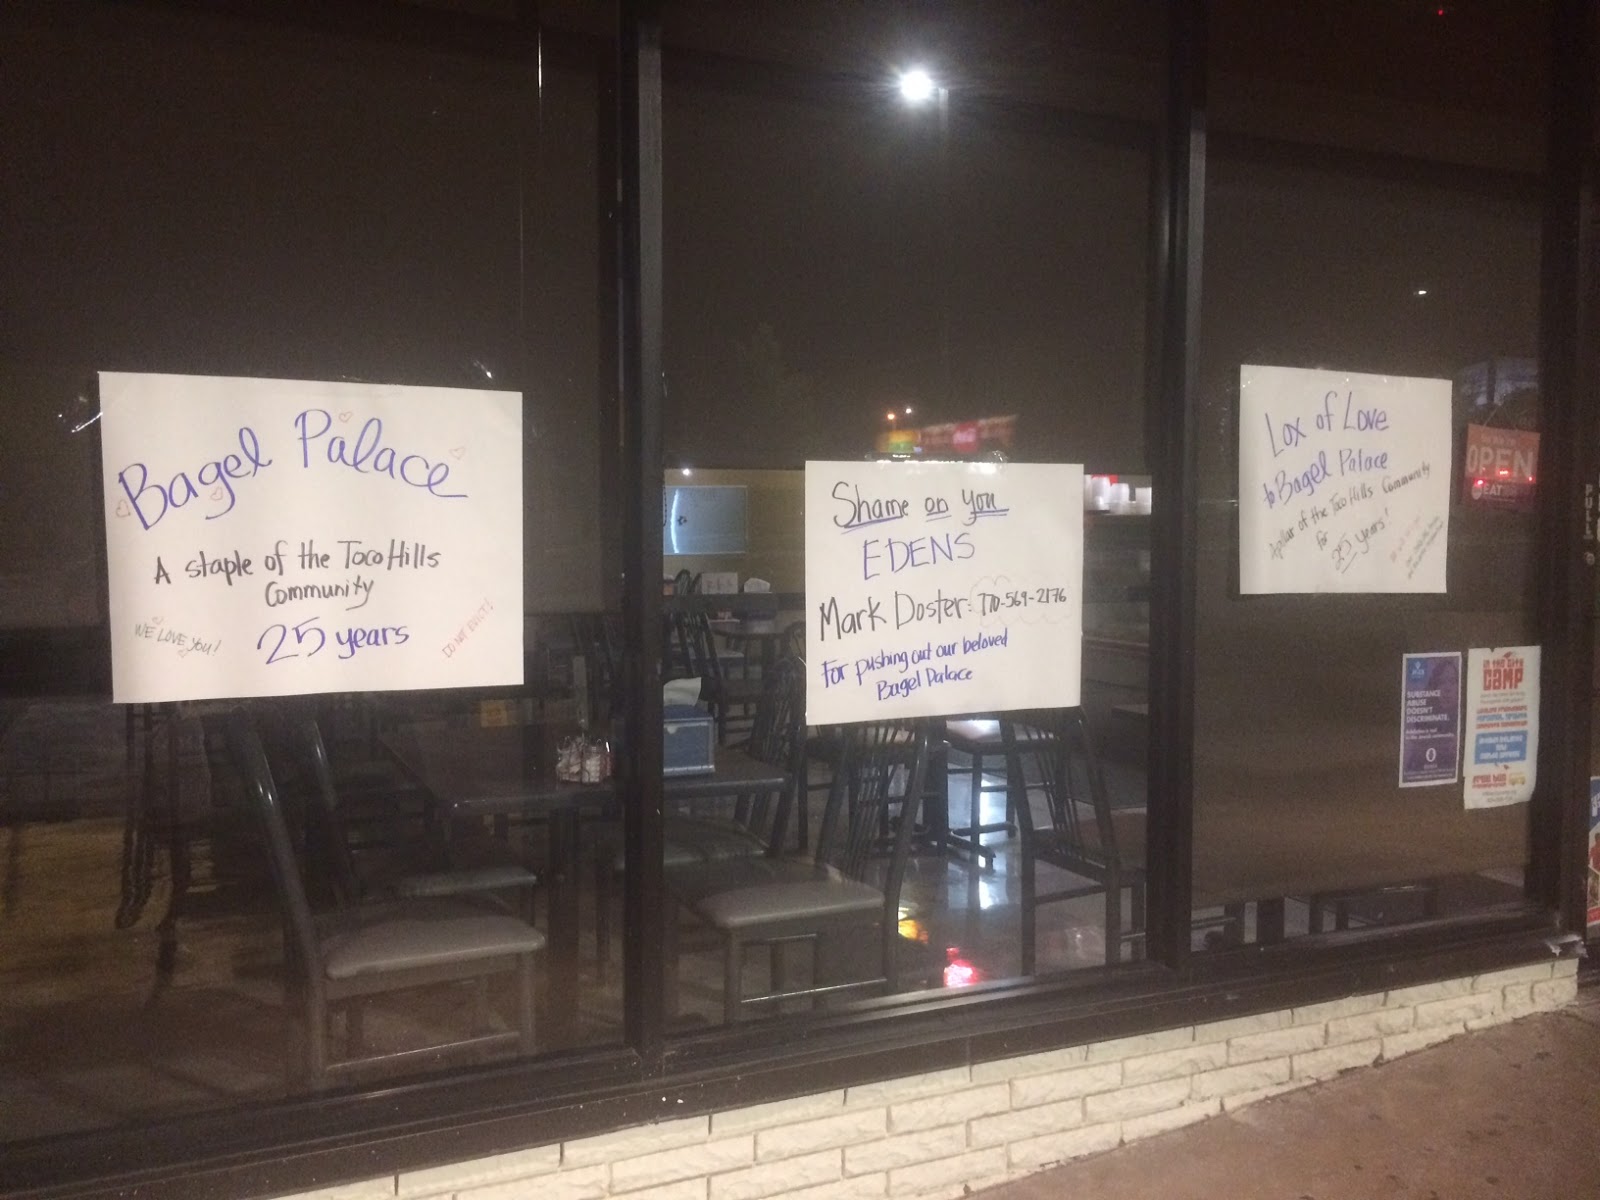 Bagel Palace
A staple of the Toco Hills
Community
25 years
WE LOVE you!
DO NOT EVICT!
Shame on you
EDENS
Mark Doster: 770-569-2176
For pushing out our beloved
Bagel Palace
Lox of Love
to Bagel Palace
A pillar of the Toco Hills Community
for
25 years!
OPEN
EAT
PULL
SUBSTANCE
ABUSE
DOESN'T
DISCRIMINATE.
IN THE CITY
CAMP